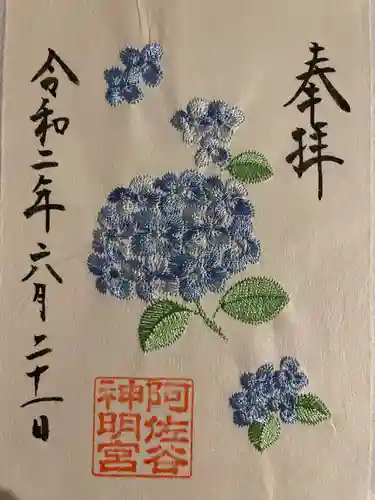 奉拝
阿佐谷
神明宮
令和二年六月二十一日